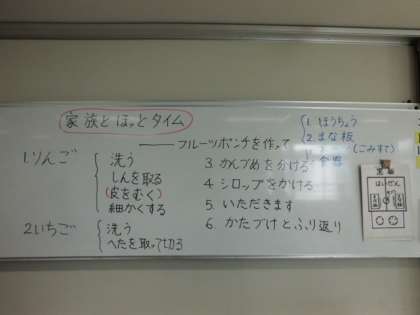 家族とほっとタイム
フルーツポンチを作って
1.りんご
洗う
しんを取る
(皮をむく)
細かくする
2.いちご
洗う
へたを取って切る
3.かんづめを分ける
4 シロップをかける
5. いただきます
6. かたづけとふり返り
1. ほうちょう
2. まな板
(ごみすて)
食器
はいぜん